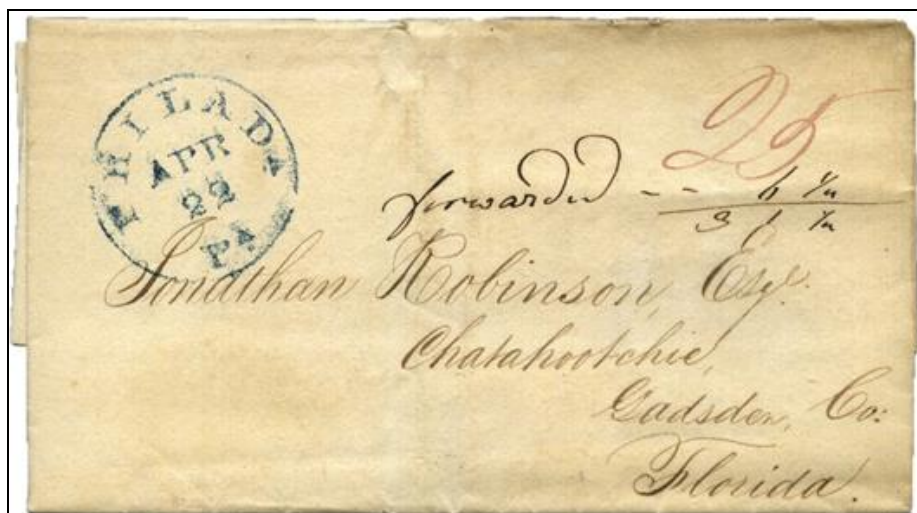 PHILADA
APR
22
PA
25
forwarded -- 6 1/4
31 1/4
Jonathan Robinson, Esqr.
Chatahootchie,
Gadsden, Co:
Florida.